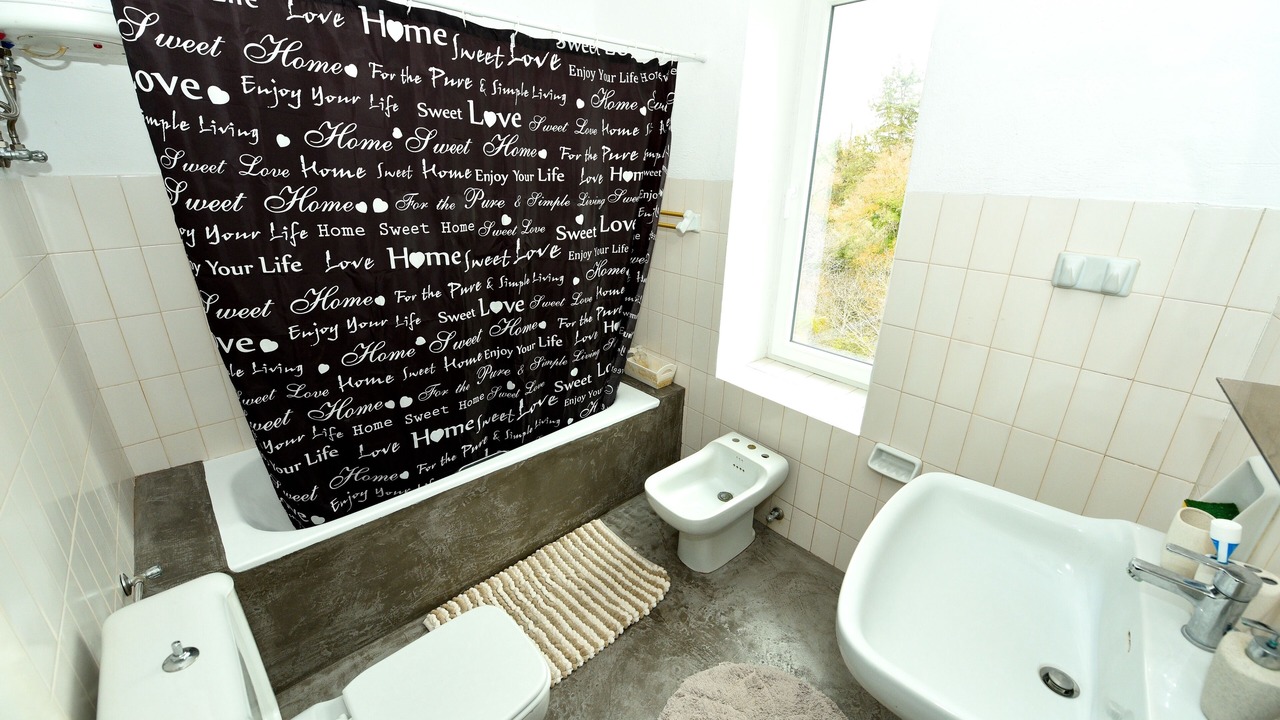 Life Love Home Sweet Love Sweet Love
Sweet Home For the Pure & Simple Living Enjoy Your Life Home
ove Enjoy Your Life Sweet Love Home
imple Living Home Sweet Home Sweet Love Home
Sweet Love Home Sweet Home Enjoy Your Life For the Pure Love Hom
Sweet Home For the Pure & Simple Living Swe
oy Your Life Home Sweet Home Sweet Love Sweet Love
y Your Life Love Home Sweet Love Enjoy Your Life
weet Home For the Pure & Simple Living Home
Enjoy Your Life Sweet Love Sweet Love Home
ve Home Sweet Home For the Pure
le Living Home Sweet Home Enjoy Your Life Love
Sweet Love Home For the Pure & Simple Living
weet Home Sweet Home Sweet Love Sweet Lo
Your Life Love Home Sweet Love Enjoy You
our Life Home For the Pure & Simple Living
Sweet Home
ve Enjoy Your Life